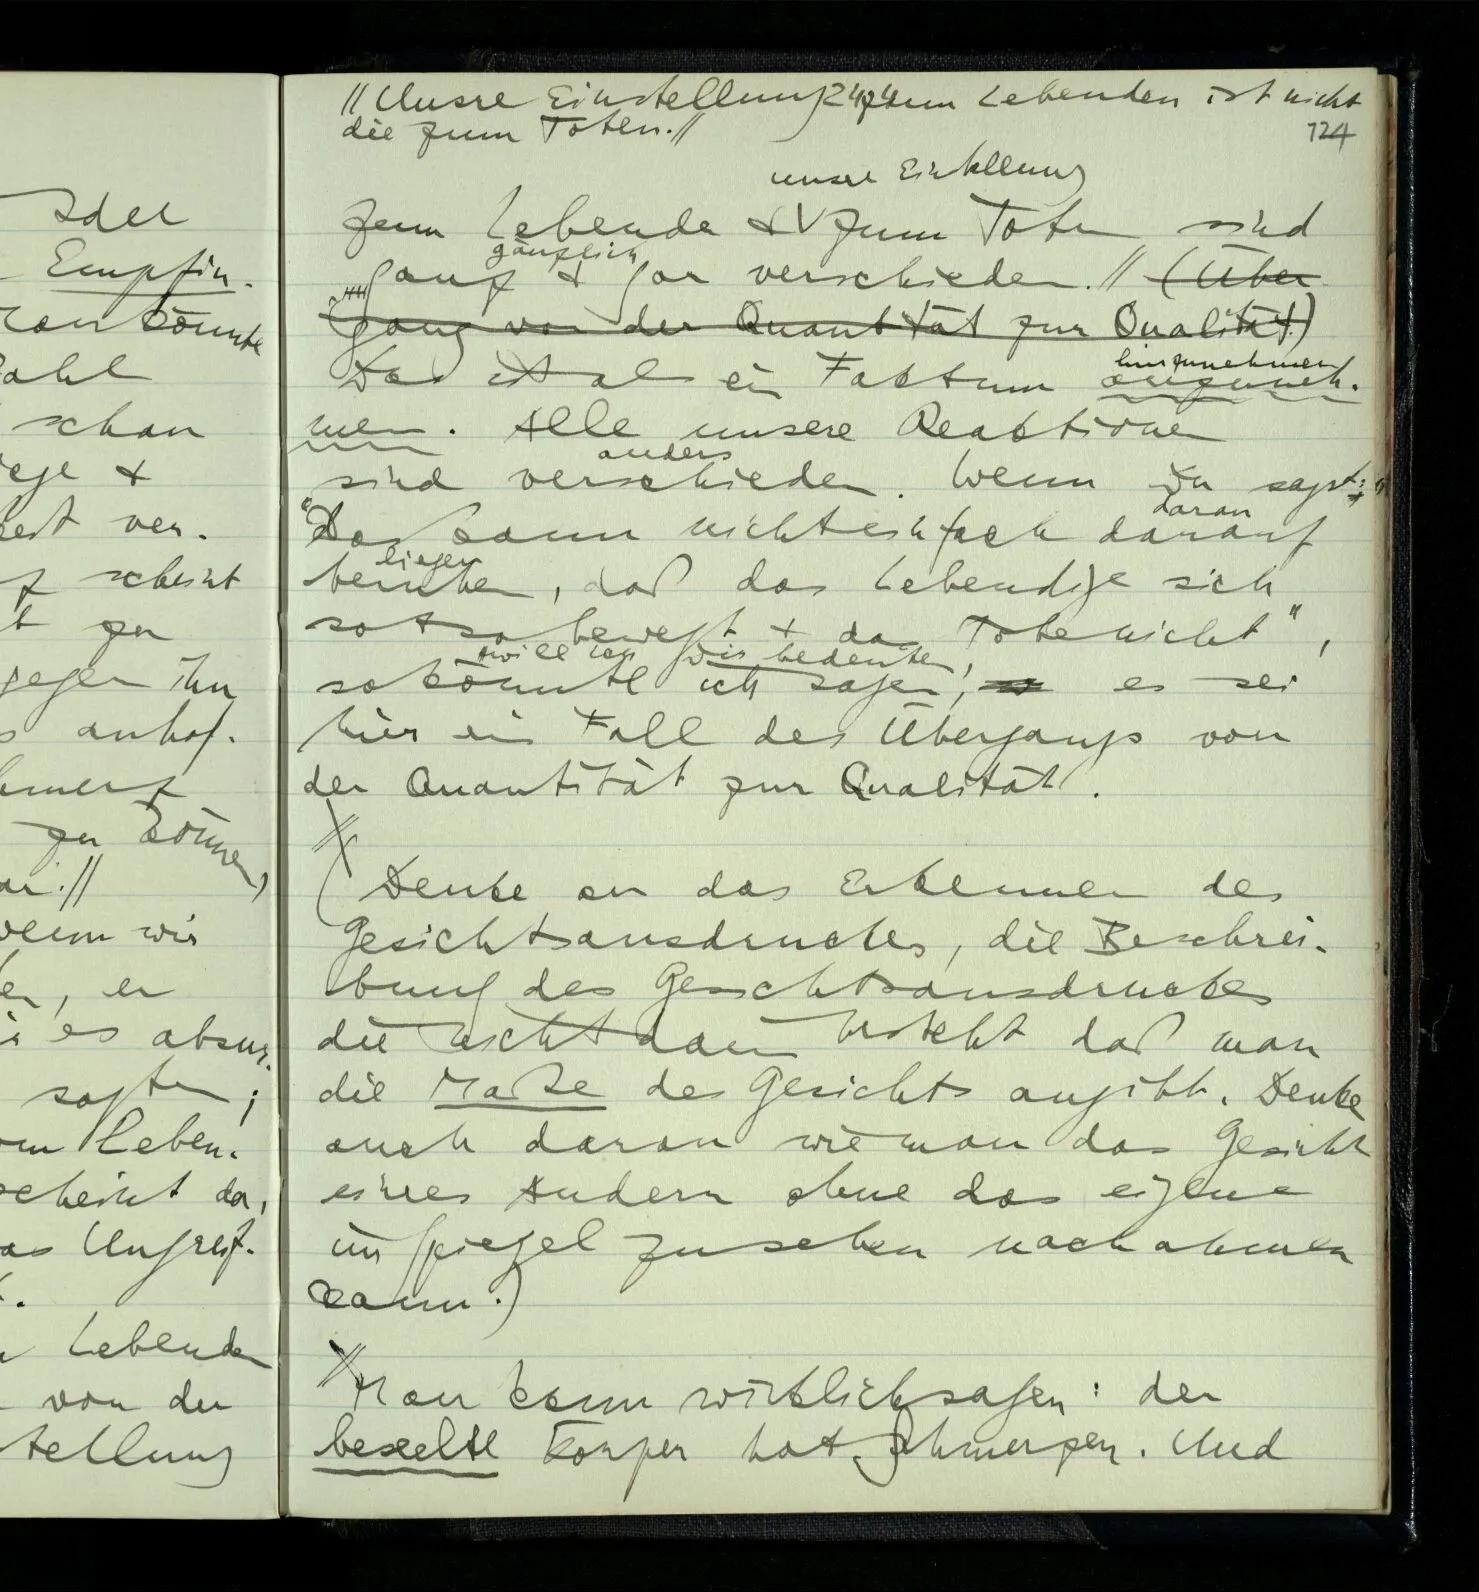 // Unsre Einstellung 247 zum Lebenden ist nicht
die zum Toten. //
124
unsre Einstellung
zum Lebenden & V zum Toten sind
gänzlich
ganz & gar verschieden. // (Über
gang von der Quantität zur Qualität.)
hinzunehmen
Das ist als ein Faktum anzuneh-
men. Alle unsere Reaktionen
anders
sind verschieden. Wenn Du sagst:
daran
"Das kann nicht einfach darauf
liegen
beruhen, daß das Lebendige sich
so & so bewegt & das Tote nicht",
will ich Dir bedeuten,
so könnte ich sagen, es sei
hier ein Fall des Übergangs von
der Quantität zur Qualität.
(Denke an das Erkennen des
Gesichtsausdruckes, die Beschrei-
bung des Gesichtsausdruckes
die nicht darin besteht daß man
die Maße des Gesichts angibt. Denke
auch daran wie man das Gesicht
eines Andern ohne das eigene
im Spiegel zu sehen nachahmen
kann.)
Man kann wirklich sagen: der
beseelte Körper hat Schmerzen. Und
oder
Empfin-
Man könnte
Zahl
schon
&
ver-
scheint
zu
gegen ihn
anhaf-
zu können,
//
wenn wir
, er
es absur-
sagten;
Leben-
scheint da,
Ungreif-
Lebenden
von der
stellung